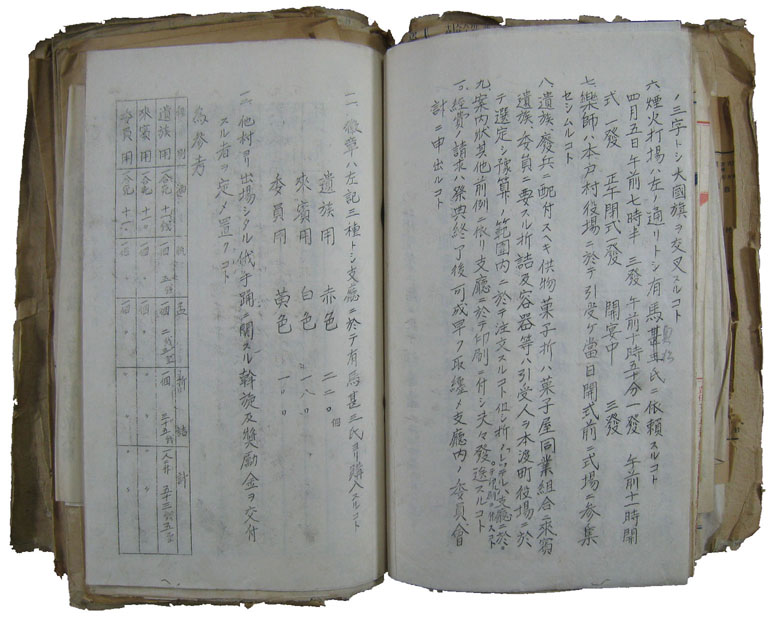 ノ三字トシ大國旗ヲ交叉スルコト
六煙火打場ハ左ノ通リトシ有馬甚三郎氏ニ依頼スルコト
四月五日午前七時半 三發 午前十時五十分一發 午前十一時開
式 一發 正午閉式一發 開宴中 三發
七樂師ハ本戸村役場ニ於テ引受ケ當日開式前ニ式場ニ參集
セシムルコト
八遺族廢兵ニ配付スベキ供物菓子折ハ菓子屋同業組合ニ來賓
遺族委員ニ要スル折詰及容器等ハ引受人ヲ本渡町役場ニ於
テ選定シ豫算ノ範圍内ニ於テ注文スルコト但シ折ハ
九案内狀其他前例ニ依リ支廳ニ於テ印刷ニ付シ夫々發送スルコト
一〇經費ノ請求ハ祭典終了後可成早ク取纏メ支廳内ノ委員會
計ニ申出ルコト
一一、徽章ハ左記三種トシ支廳ニ於テ有馬甚三氏ヨリ購入スルコト
遺族用 赤色 二二〇個
來賓用 白色 一八〇〃
委員用 黄色 一〇〇
一二、他村ヨリ出場シタル俄手踊ニ關スル幹旋及奬勵金ヲ交付
スル者ヲ定メ置クコト
為參考
種別
折詰 計
遺族用
來賓用
委員用